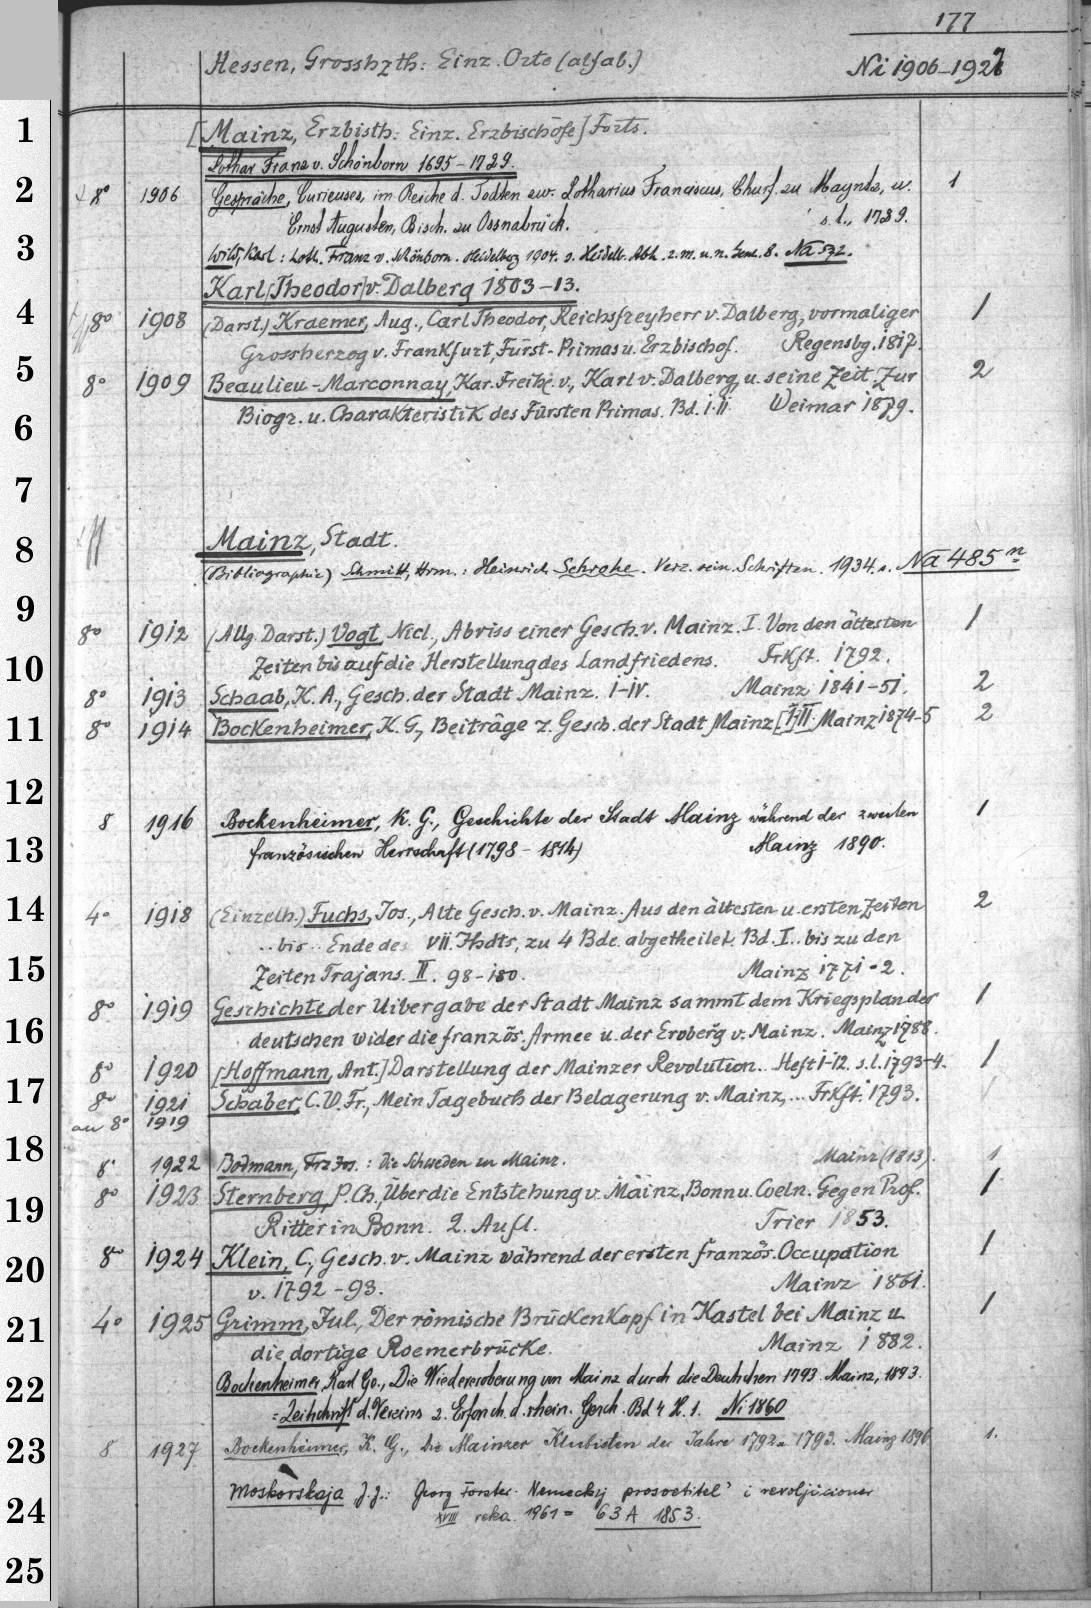 177
Hessen, Grosshzth: Einz. Orte (alfab.) Ni 1906-1927
[Mainz, Erzbisth: Einz. Erzbischöfe] Forts.
1
Lothar Franz v. Schönborn 1695-1729.
2 8° 1906 Gespräche, Curieuses, im Reiche d. Todten zw. Lotharius Franciscus, Churf. zu Mayntz, u. 1
Ernst Augusten, Bisch. zu Ossnabrück. s.l., 1729.
3 Wild, Karl: Loth. Franz v. Schönborn. Heidelberg 1904. s. Heidelb. Abh. z. m. u. n. Gesch. 8. Na 532.
Karl [Theodor] v. Dalberg 1803-13.
4 8° 1908 (Darst.) Kraemer, Aug., Carl Theodor, Reichsfreyherr v. Dalberg, vormaliger 1
Grossherzog v. Frankfurt, Fürst-Primas u. Erzbischof. Regensbg. 1817.
5 8° 1909 Beaulieu-Marconnay, Kar. Freih. v., Karl v. Dalberg u. seine Zeit. Zur 2
6 Biogr. u. Charakteristik des Fürsten Primas. Bd. I.II Weimar 1879.
7
8 Mainz, Stadt.
(Bibliographie) Schmitt, Hrm.: Heinrich Schrohe. Verz. sein. Schriften. 1934. s. Na 485 n
9 8° 1912 (Allg. Darst.) Vogt, Nicl., Abriss einer Gesch. v. Mainz. I. Von den ältesten 1
10 Zeiten bis auf die Herstellung des Landfriedens. Frkft. 1792.
8° 1913 Schaab, K. A., Gesch. der Stadt Mainz. I-IV. Mainz 1841-51. 2
11 8° 1914 Bockenheimer, K. G., Beiträge z. Gesch. der Stadt Mainz [I.]II. Mainz 1874-5 2
12
8 1916 Bockenheimer, K. G., Geschichte der Stadt Mainz während der zweiten 1
13 französischen Herrschaft (1798-1814) Mainz 1890.
14 4° 1918 (Einzelh.) Fuchs, Jos., Alte Gesch. v. Mainz. Aus den ältesten u. ersten Zeiten 2
..bis.. Ende des VII. Jhdts, zu 4 Bde. abgetheilet. Bd. I.. bis zu den
15 Zeiten Trajans. II. 98-180. Mainz 1771-2.
8° 1919 Geschichte der Uibergabe der Stadt Mainz sammt dem Kriegsplan der 1
16 deutschen wider die französ. Armee u. der Eroberg v. Mainz. Mainz 1788.
8° 1920 [Hoffmann, Ant.] Darstellung der Mainzer Revolution.. Heft 1-12. s.l. 1793-4. 1
17 8° 1921 Schaber, C. W. Fr., Mein Tagebuch der Belagerung v. Mainz,... Frkft. 1793.
an 8° 1919
18 8° 1922 Bodmann, Frz Jos.: Die Schweden zu Mainz. Mainz (1813). 1
8° 1923 Sternberg, P. Ch., Über die Entstehung v. Mainz, Bonn u. Coeln. Gegen Prof. 1
19 Ritter in Bonn. 2. Aufl. Trier 1853.
8° 1924 Klein, C., Gesch. v. Mainz während der ersten französ. Occupation 1
20 v. 1792-93. Mainz 1861.
4° 1925 Grimm, Jul., Der römische Brückenkopf in Kastel bei Mainz u. 1
21 die dortige Roemerbrücke. Mainz 1882.
22 Bockenheimer, Karl Go., Die Wiedereroberung von Mainz durch die Deutschen 1793. Mainz, 1893.
= Zeitschrift d. Vereins z. Erforsch. d. rhein. Gesch. Bd 4 H. 1. Ni 1860
23 8 1927 Bockenheimer, K. G., die Mainzer Klubisten der Jahre 1792 u. 1793. Mainz 1896 1.
Moskovskaja J. J.: Georg Forster. Nemeckij prosvetitel' i revoljucioner
24 XVIII veka. 1961 = 63 A 1853.
25